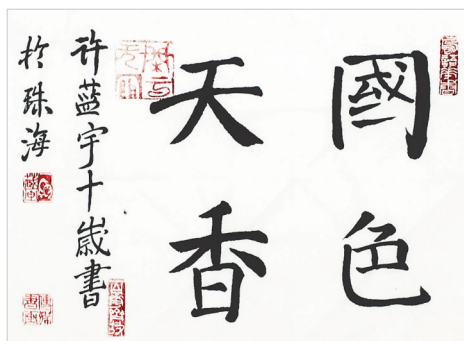 國色
天香
许蓝宇十歲書
於珠海